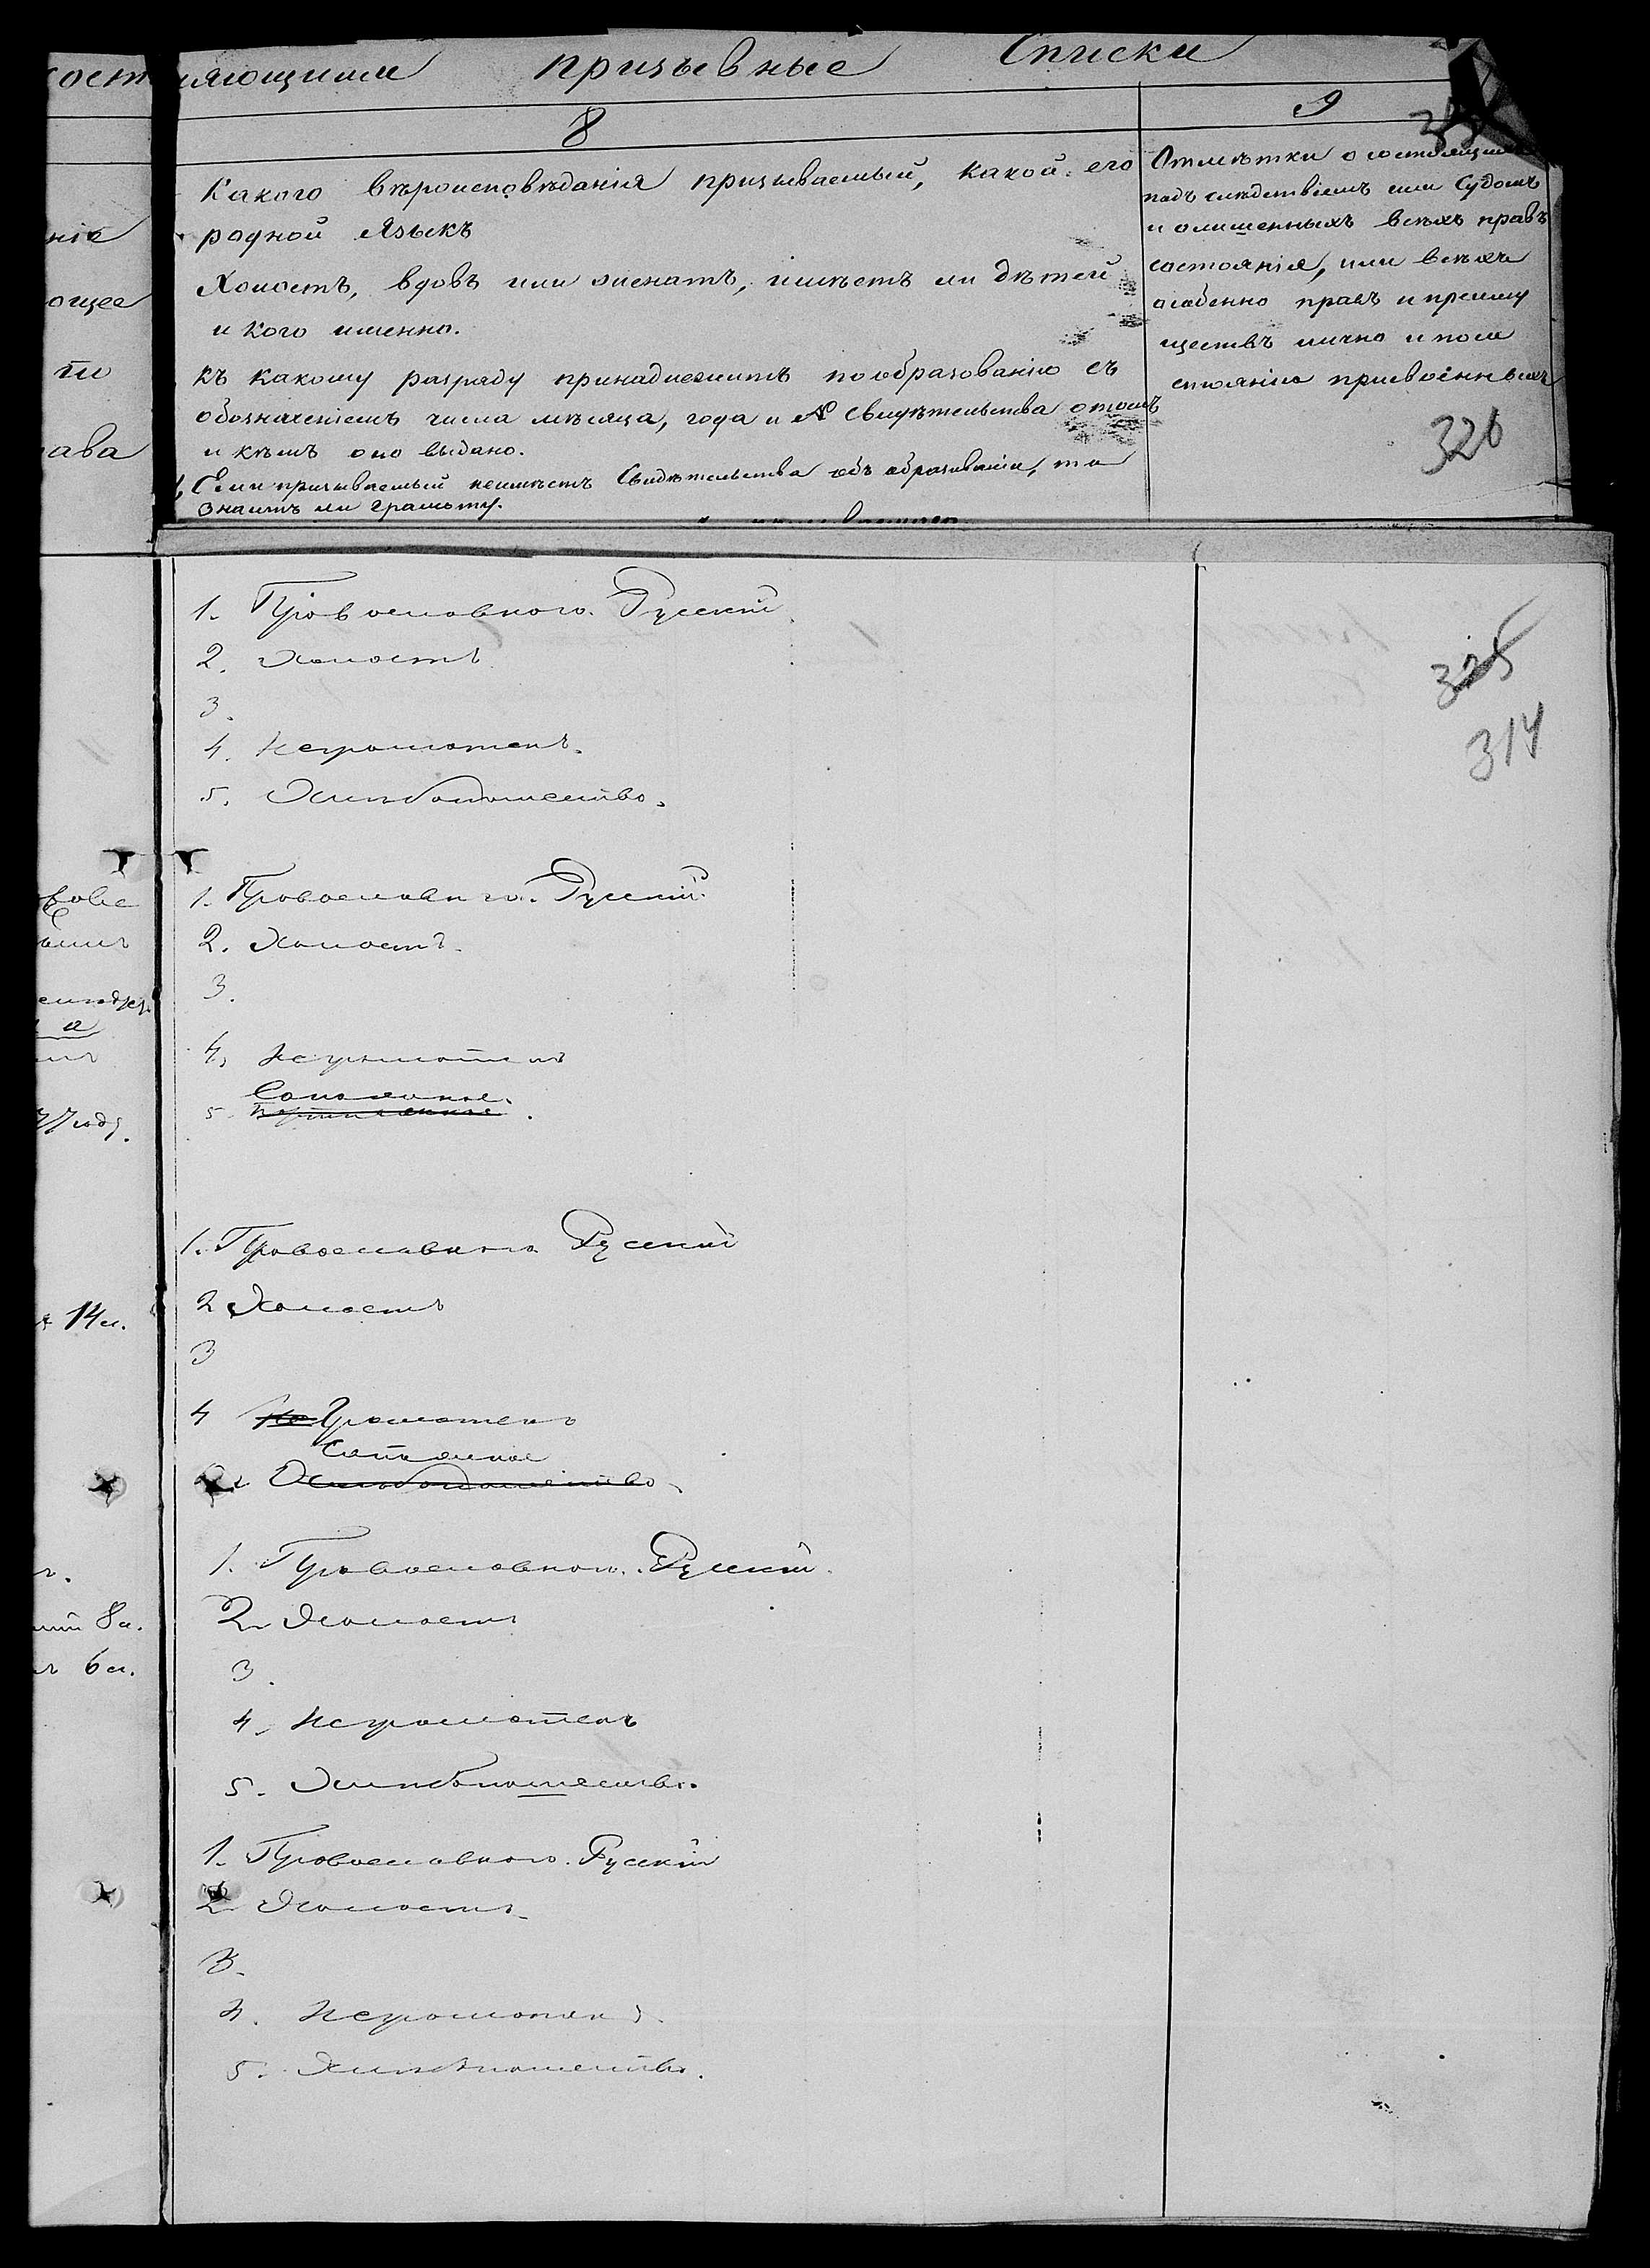 составляющими призывные Списки
8
9
Какого вѣроисповѣданія призываемый, какой его
родной Языкъ
Холостъ, вдовъ или женатъ, имѣетъ ли дѣтей
и кого именно.
къ какому разряду принадлежитъ по образованію съ
обозначеніемъ числа мѣсяца, года и № Свидѣтельства о томъ
и кѣмъ оно выдано.
Если призываемый неимѣетъ Свидѣтельства объ образованіи, то
Знаитъ ли грамоту.
Отмѣтки о состоящихъ
подъ слѣдствіемъ или Судомъ
и о лишенныхъ всѣхъ правъ
состоянія, или всѣхъ
особенно правъ и преиму
ществъ лично и по со
стоянію присвоенныхъ
326
нія
ющее
ти
ава
1. Провославного. Русскій
2. Холостъ
3.
4. Неграмотенъ.
5. Хлѣбопашество.
325
314
1. Провославного. Русскій.
2. Холостъ.
3.
4, Неграмотенъ
5.
1. Провославного Русскій
2 Холостъ
3
4 Не Грамотенъ
Хлѣбопашество
14 л.
1. Провославного. Русскій.
2 Холостъ
3.
4. Неграмотенъ
5. Хлѣбопашество.
8 л.
6 л.
1. Провославного. Русскій
2. Холостъ.
3.
4. Неграмотенъ.
5. Хлѣбопашество.